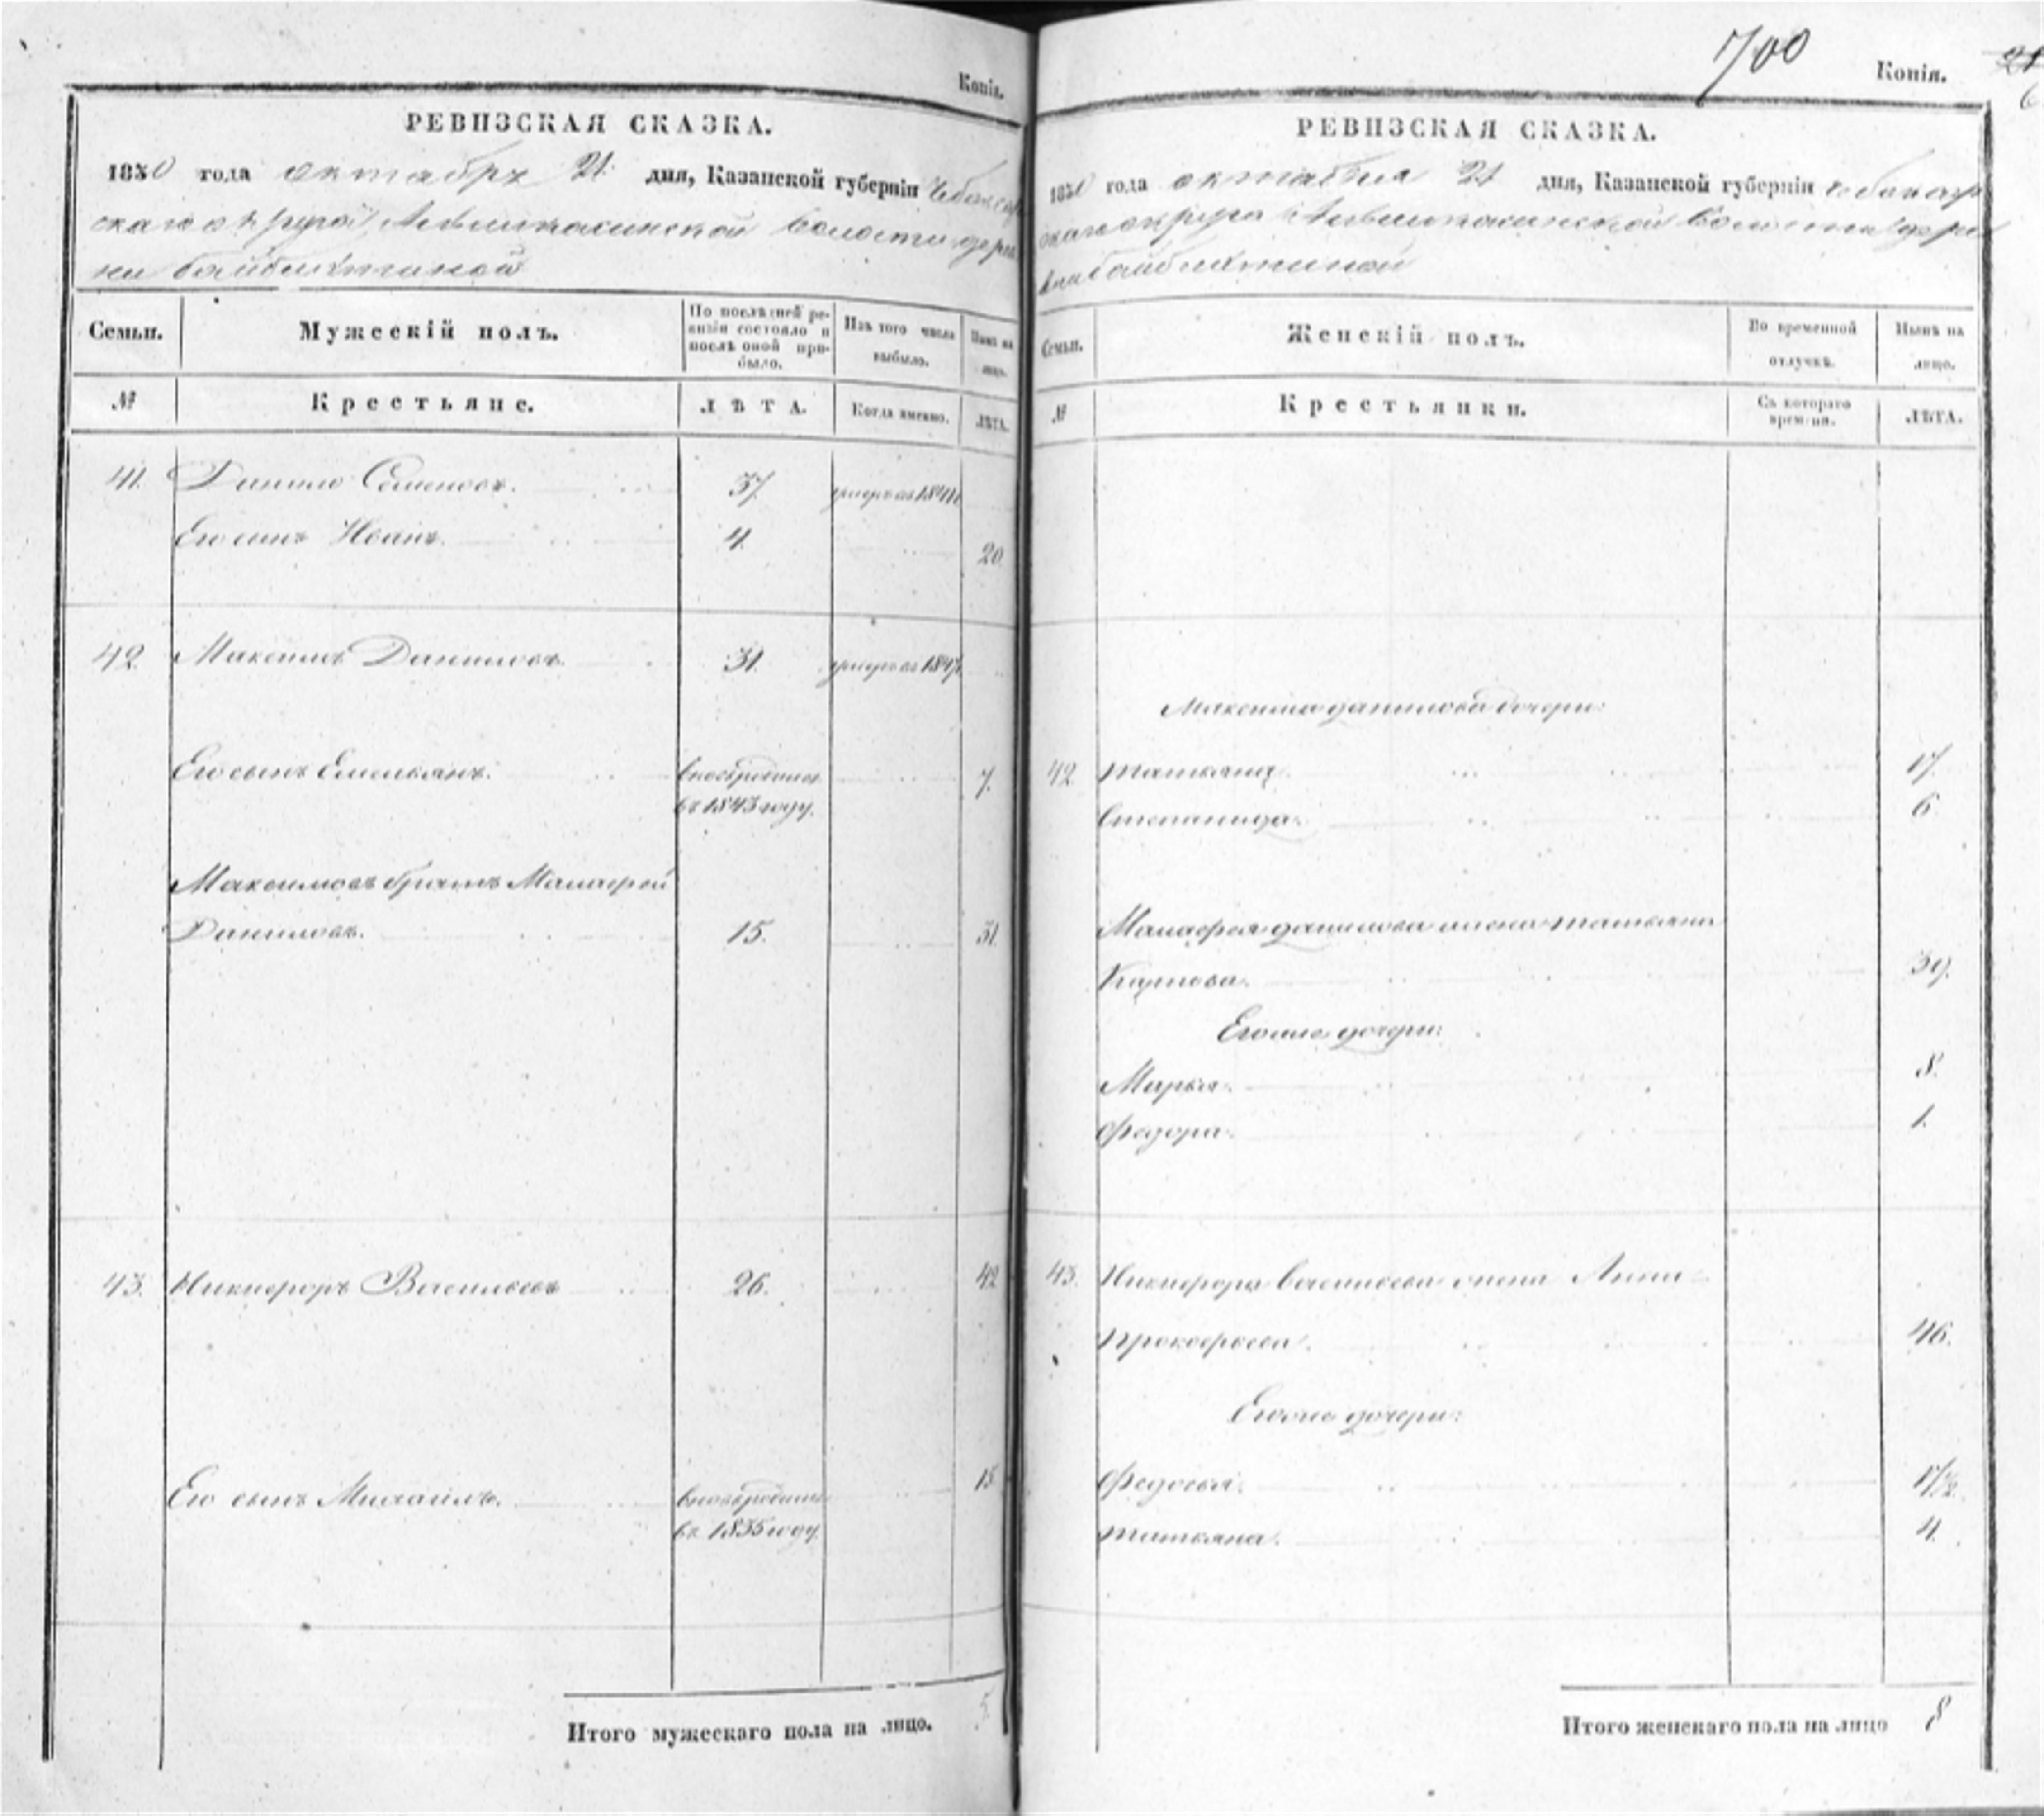 Копія.
РЕВИЗСКАЯ СКАЗКА.
1850 года октября 21 дня, Казанской губерніи Чебоксар
скаго округа волости дерев
ни байбахтиной
Семьи.
Мужескій полъ.
По послѣдней ре-
визіи состояло и
послѣ оной при-
было.
Изъ того числа
выбыло.
Нынѣ на
лицо.
№
Крестьяне.
ЛѢТА.
Когда именно.
ЛѢТА.
41. Данило Семеновъ. 37. умеръ въ
Его сынъ Иванъ. 4. 20.
42. Максимъ Даниловъ. 31. умеръ въ
Его сынъ Емельянъ. вновь рожденъ 7.
въ 1843 году.
Максимовъ братъ
Даниловъ. 15. 31.
43. Никифоръ Васильевъ 26. 42
Его сынъ Михайлъ. вновь рожденъ 15
въ 1835 году.
Итого мужескаго пола на лицо. 5.
700
Копія.
РЕВИЗСКАЯ СКАЗКА.
1850 года октября 21 дня, Казанской губерніи Чебоксар
скаго округа волости дерев
ни байбахтиной
Семьи.
Женскій полъ.
Во временной
отлучкѣ.
Нынѣ на
лицо.
№
Крестьянки.
Съ котораго
времени.
ЛѢТА.
Максима данилова дочери:
42 татьяна. 17.
степанида. 6
данилова жена татьяна
Карпова. 39.
Его же дочери:
Марья. 8.
Федора. 1.
43. Никифора васильева жена Анна
прокофьева. 46.
Его же дочери:
Федосья. 17½.
татьяна. 4.
Итого женскаго пола на лицо 8